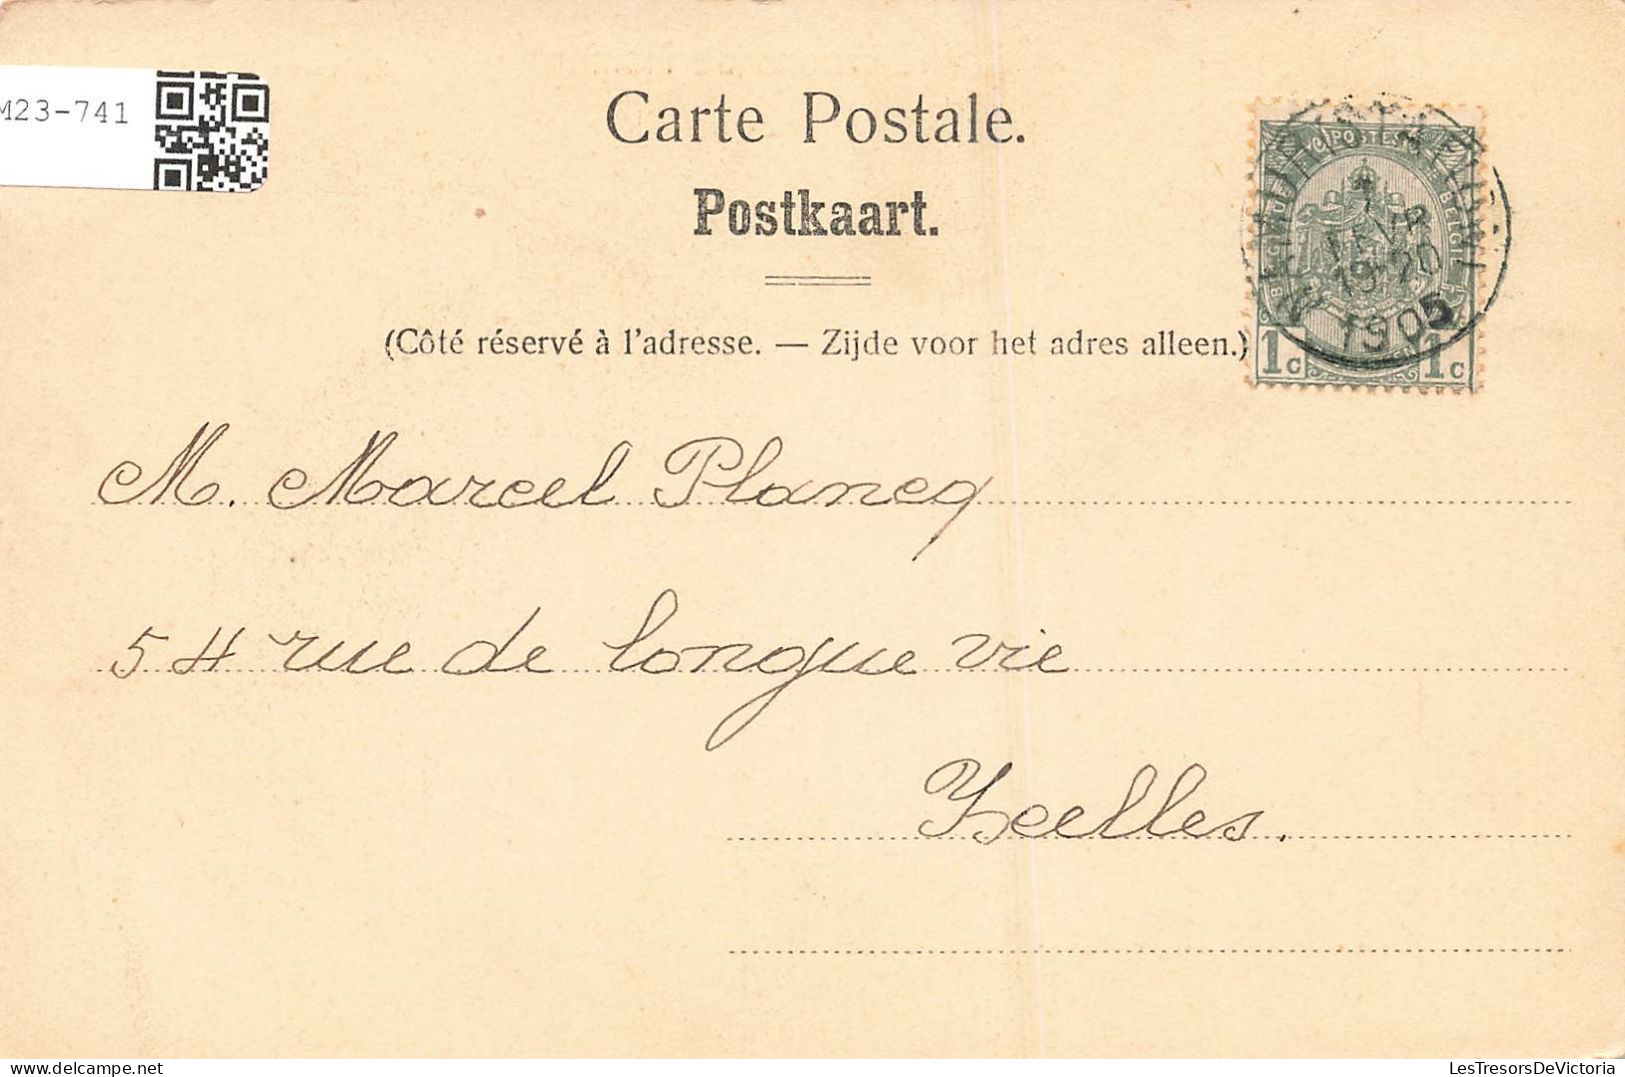 M23-741
Carte Postale.
Postkaart.
(Côté réservé à l'adresse. — Zijde voor het adres alleen.)
POSTES
1 AVR
19-20
1905
1c 1c
M. Marcel Plancq
54 rue de longue vie
Ixelles.
LesTresorsDeVictoria